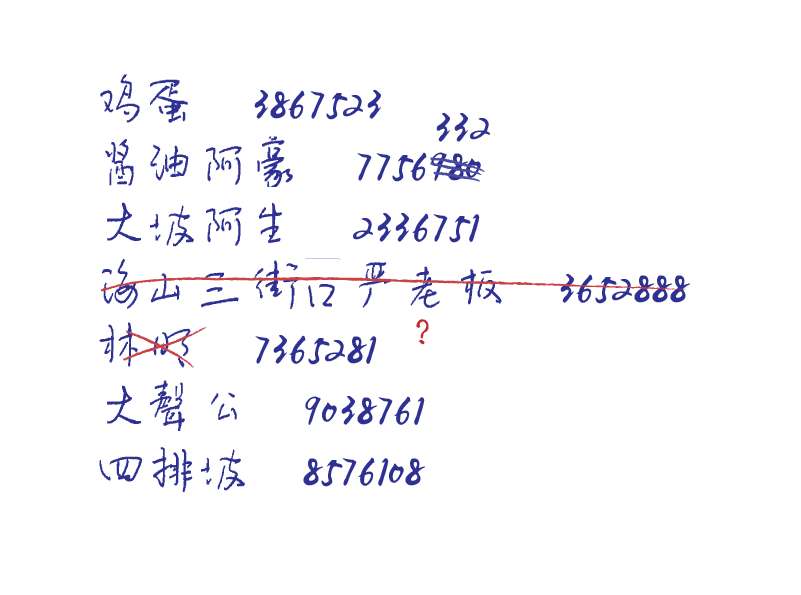 鸡蛋 3867523
332
酱油阿豪 7756980
大坡阿生 2336751
海山三街口严老板 3652888
林明 7365281
?
大聲公 9038761
四排坡 8576108